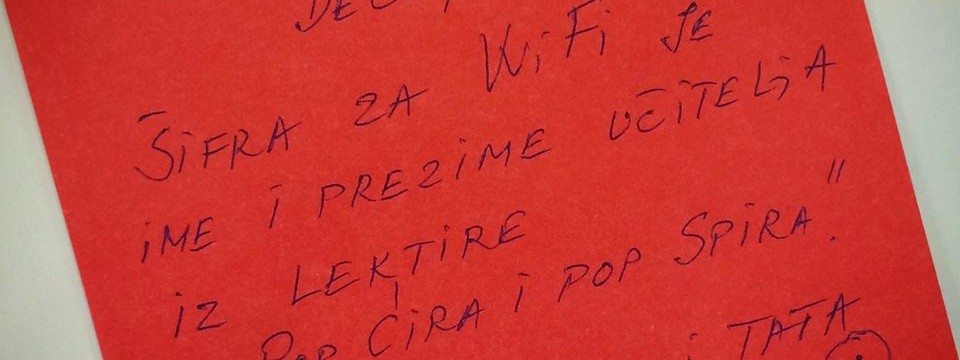 ŠIFRA ZA WiFi JE
IME I PREZIME UČITELJA
IZ LEKTIRE
"POP ĆIRA I POP SPIRA."
I TATA